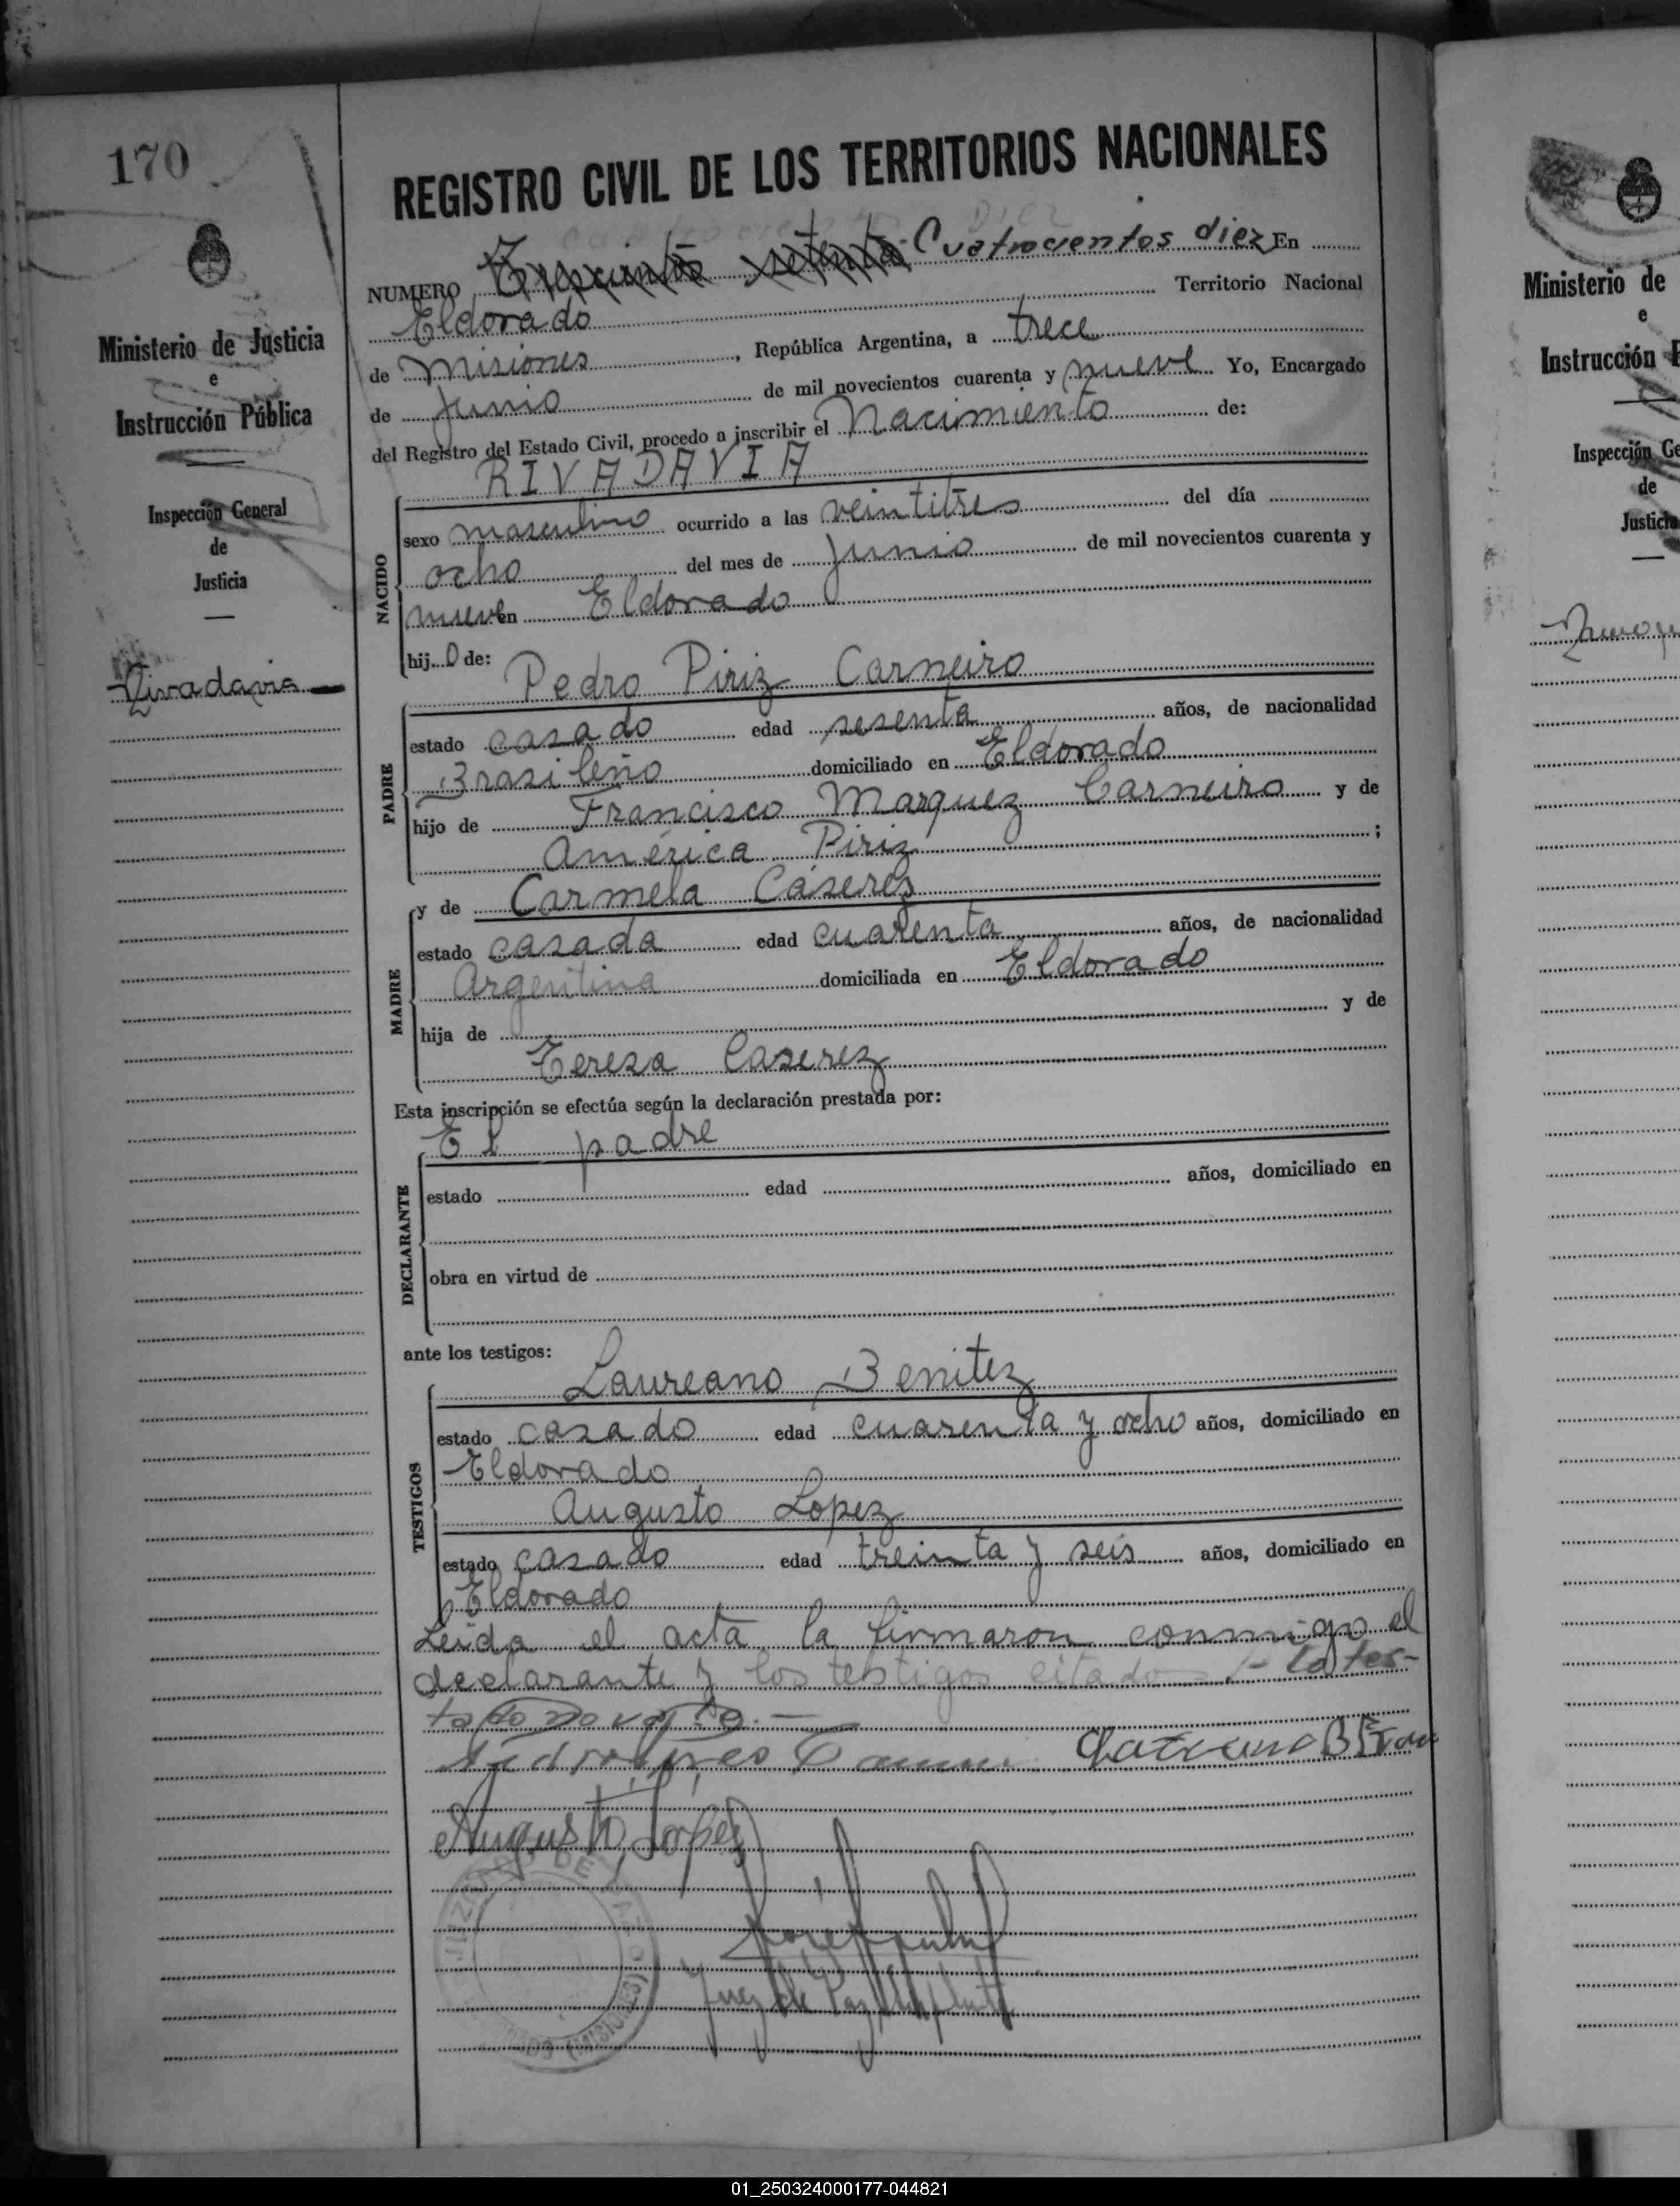 170
REGISTRO CIVIL DE LOS TERRITORIOS NACIONALES
NUMERO Trescientos setenta Cuatrocientos diez En
Eldorado Territorio Nacional
de Misiones, República Argentina, a trece
de Junio de mil novecientos cuarenta y nueve Yo, Encargado
del Registro del Estado Civil, procedo a inscribir el Nacimiento de:
RIVADAVIA
NACIDO
sexo masculino ocurrido a las veintitres del día
ocho del mes de Junio de mil novecientos cuarenta y
nueve en Eldorado
hijo de:
Pedro Piriz Carneiro
PADRE
estado casado edad sesenta años, de nacionalidad
Brasileño domiciliado en Eldorado
hijo de Francisco Marquez Carneiro y de
América Piriz;
y de Carmela Cáserez
MADRE
estado casada edad cuarenta años, de nacionalidad
Argentina domiciliada en Eldorado
hija de y de
Teresa Caserez
Esta inscripción se efectúa según la declaración prestada por:
El padre
DECLARANTE
estado edad años, domiciliado en
obra en virtud de
ante los testigos:
Laureano Benitez
TESTIGOS
estado casado edad cuarenta y ocho años, domiciliado en
Eldorado
Augusto Lopez
estado casado edad treinta y seis años, domiciliado en
Eldorado
Leida el acta la firmaron conmigo el
declarante y los testigos citados - lo tes-
tado no vale.-
Augusto Lopez
Juez de Paz Suplente
JUZGADO DE PAZ
(MISIONES)
Ministerio de Justicia
e
Instrucción Pública
Inspección General
de
Justicia
Rivadavia
Ministerio de
e
Instrucción P
Inspección Ge
de
Justicia
01_250324000177-044821